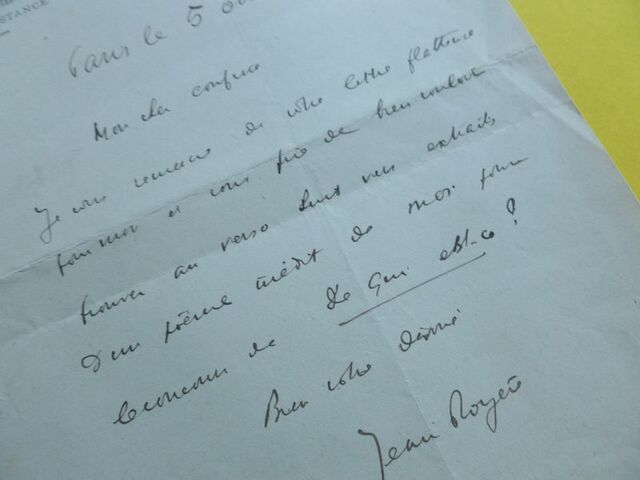 STANCE
Paris le 5
Mon cher confrère
Je vous remercie de votre lettre flatteuse
pour moi et vous prie de bien vouloir
trouver au verso huit vers extraits
d'un poème inédit de moi pour
le concours de De qui est-ce ?
Bien votre dévoué
Jean Royère